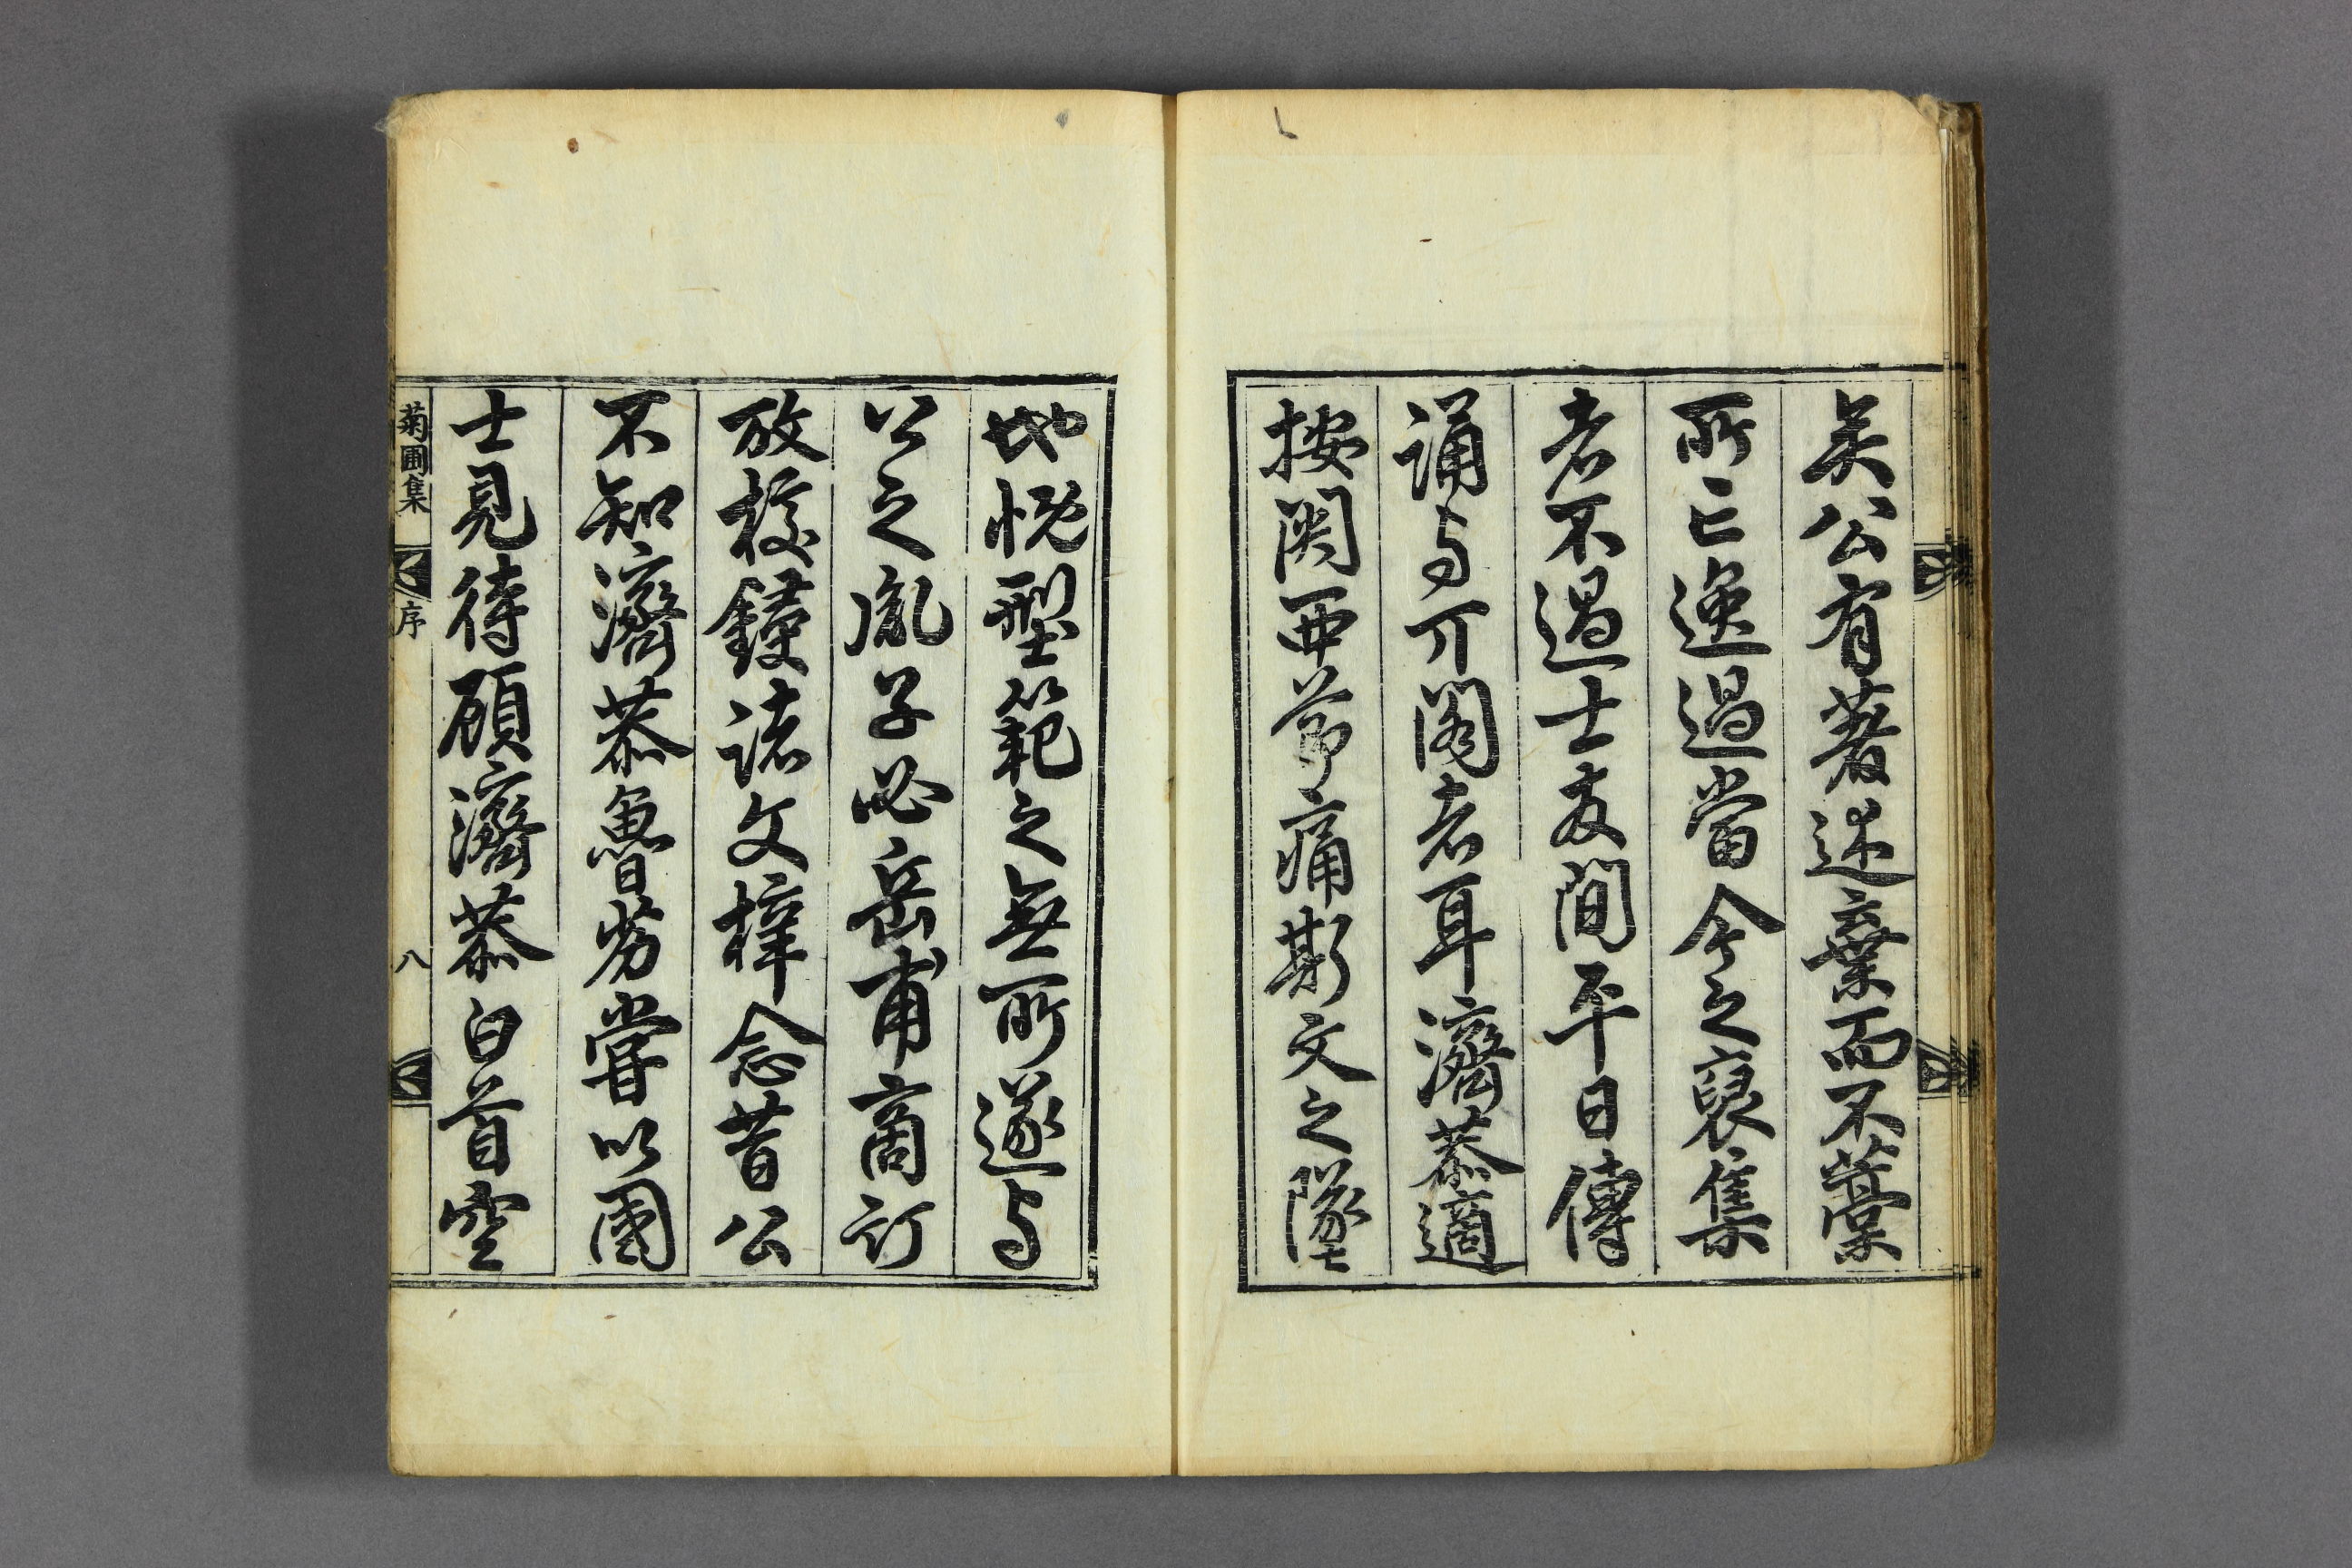 矣公有著述棄而不藁
所亡逸過當今之裒集
者不過士友間平日傳
誦与丌閣者耳濟恭適
按関西節痛斯文之墜
地悦型範之無所遂与
公之胤子必岳甫商訂
放校鋟諸文梓念昔公
不知濟恭魯劣嘗以國
士見待顧濟恭白首空
菊圃集 序 八